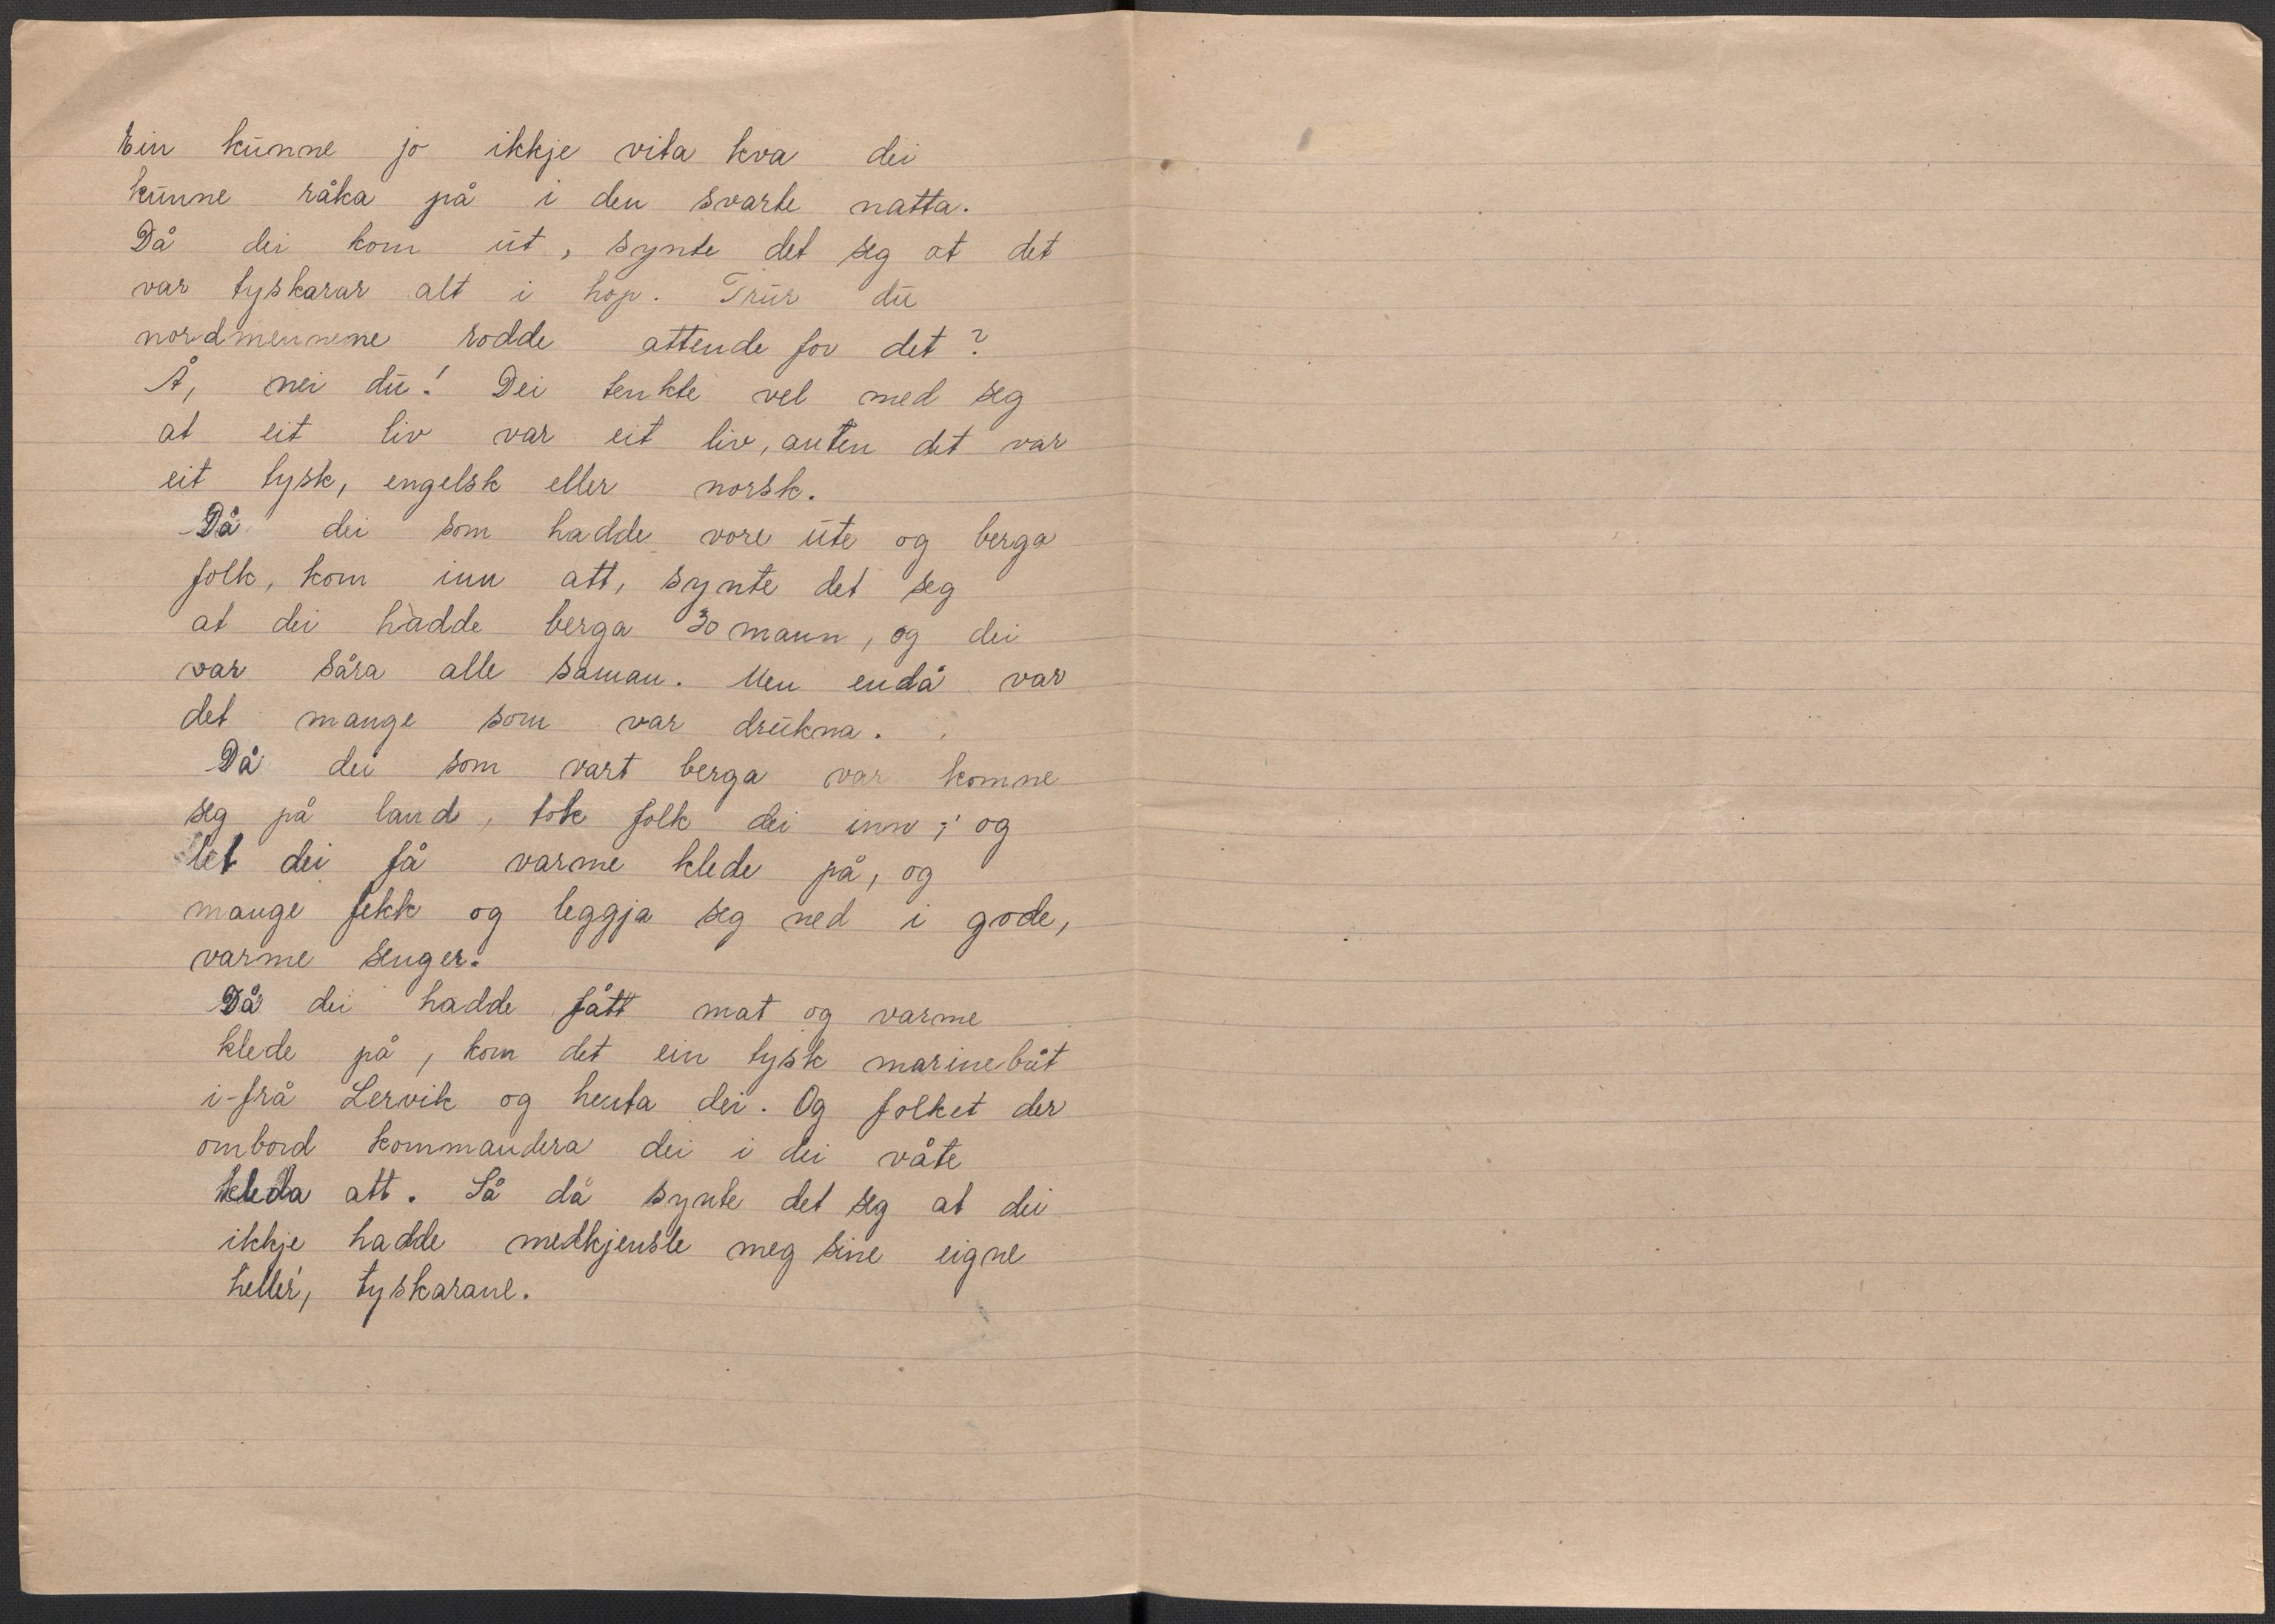 Ein kunne jo ikkje vita kva dei
kunne råka på i den svarte natta.
Då dei kom ut, synte det seg at det
var tyskarar alt i hop. Trur du
nordmennene rodde attende for det?
Å, nei du! Dei tenkte vel med seg
at eit liv var eit liv, anten det var
eit tysk, engelsk eller norsk.
Då dei som hadde vore ute og berga
folk, kom inn att, synte det seg
at dei hadde berga 30 mann, og dei
var såra alle saman. Men endå var
det mange som var drukna.
Då dei som vart berga var komne
seg på land, tok folk dei inn; og
let dei få varme klede på, og
mange fekk og leggja seg ned i gode,
varme senger.
Då dei hadde fått mat og varme
klede på, kom det ein tysk marinebåt
i-frå Lervik og henta dei. Og folket der
ombord kommandera dei i dei våte
kleda att. Så då synte det seg at dei
ikkje hadde medkjensle meg sine eigne
heller, tyskarane.